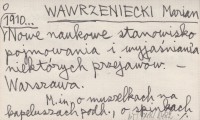 O
1910... WAWRZENIECKI Marian
Nowe naukowe stanowisko
pojmowania i wyjaśniania
niektórych przejawów. —
Warszawa.
M.in. o muszelkach na
kapeluszach podh., o spinkach